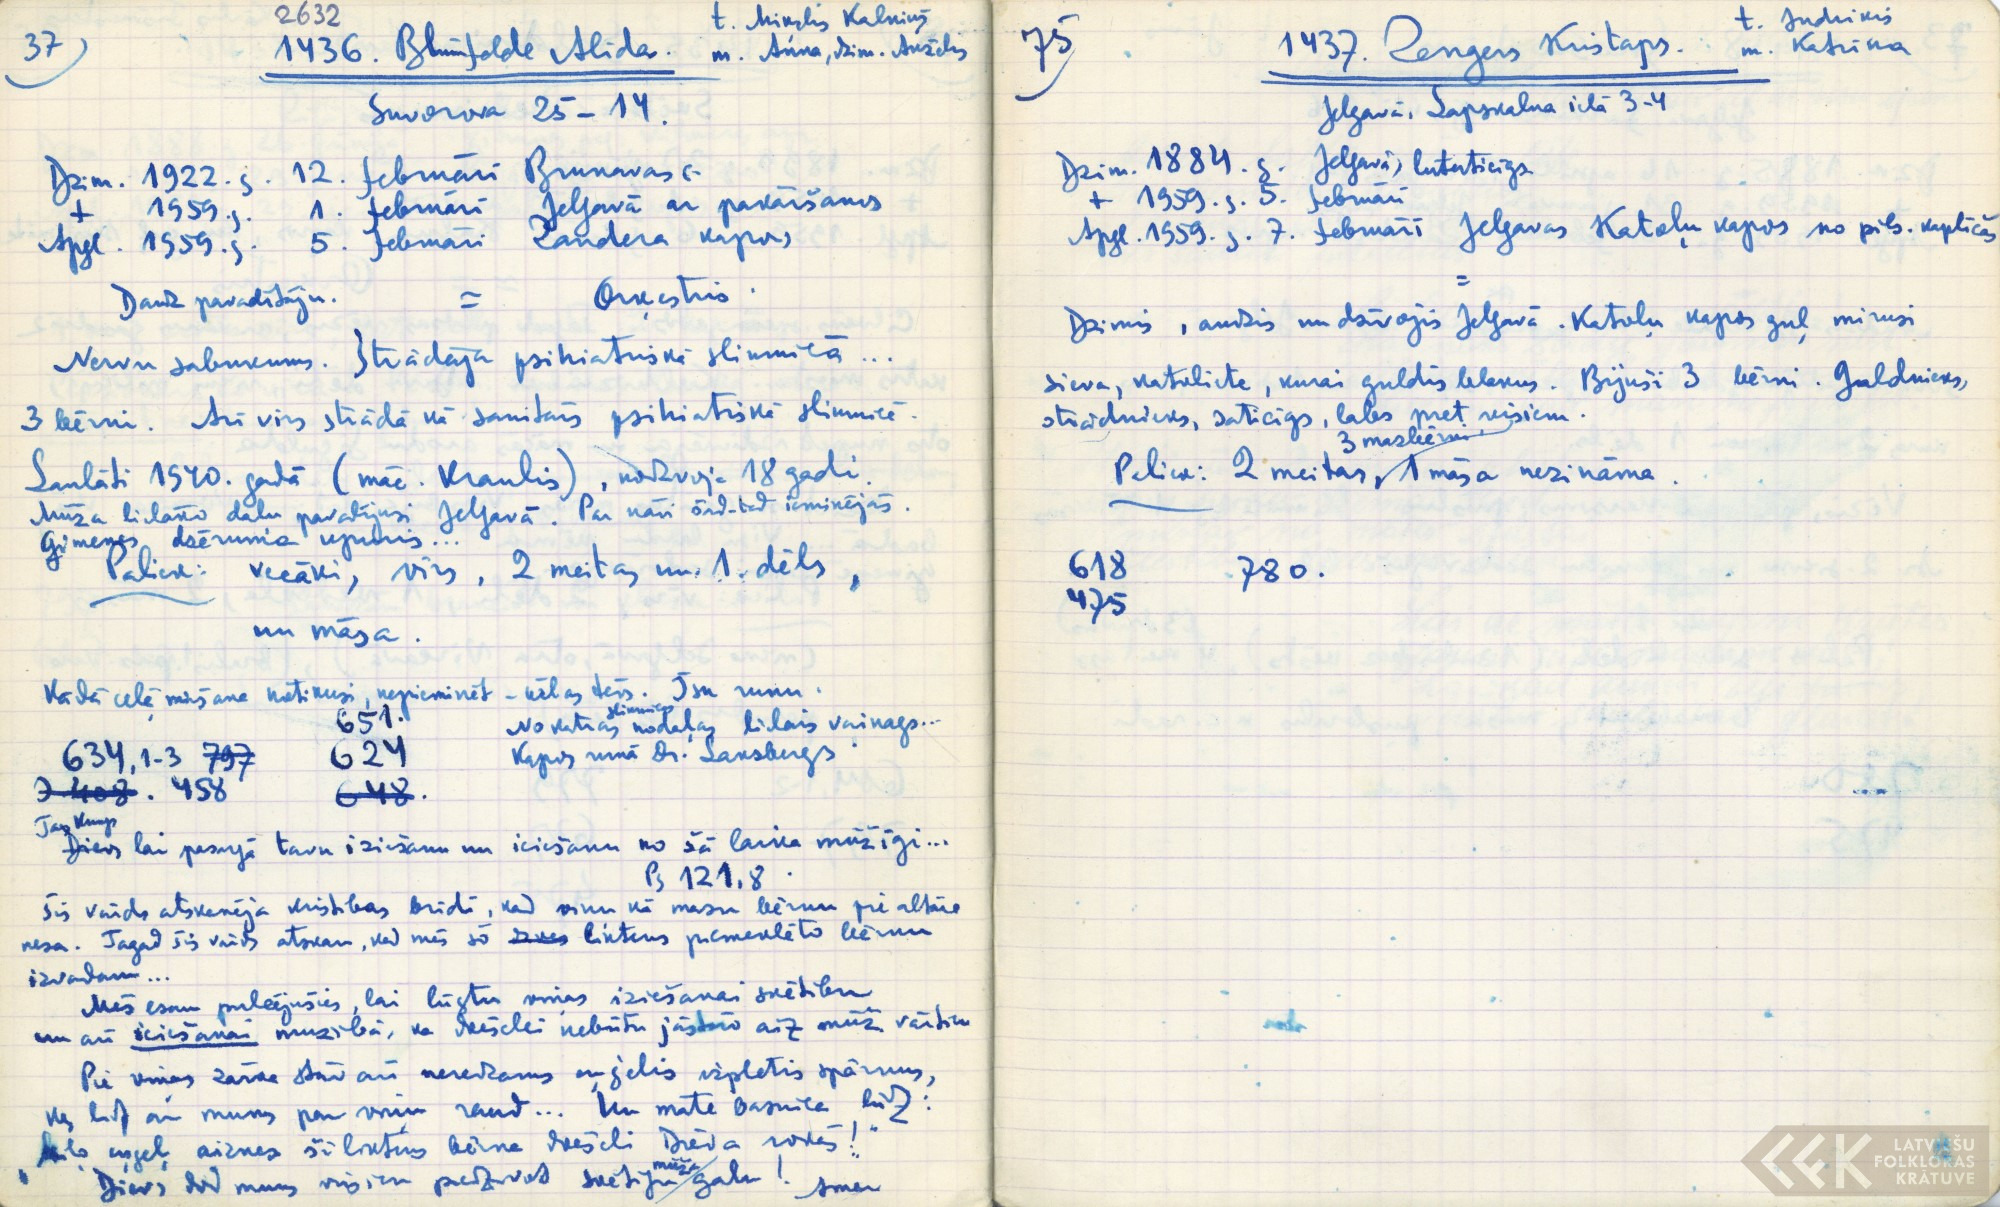 2632
37)
1436. Blumfelde Alida.
t. Miķelis Kalniņš
m. Anna, dzim.
Suvorova 25-14.
Dzim. 1922.g. 12. februārī Brunavas
+ 1959.g. 1. februārī Jelgavā ar pakāršanos
Apgl. 1959.g. 5. februārī Zandera kapos
Daudz pavadītāju. = Orķestris.
Nervu sabrukums. Strādāja psihiatriskā slimnīcā...
3 bērni. Arī vīrs strādā kā sanitārs psihiatriskā slimnīcā.
Laulāti 1940. gadā (māc. Kraulis), nodzīvoja 18 gadi.
Mūža lielāko daļu pavadījusi Jelgavā. Par kādu šad-tad ieminējās.
Ģimenes dzēruma
Paliek: vecāki, vīrs, 2 meitas un 1 dēls,
un māsa.
Kādā ceļā miršana notikusi, nepieminēt - tēvs. Īsu runu.
651.
No katras slimnīcas nodaļas lielais vaiņags...
634,1-3 797 624
Kapos runā Dr. Laksbergs
408. 458 648.
Tas Kungs
Dievs lai pasargā tavu iziešanu un ieiešanu no šā laika mūžīgi...
Ps 121,8.
Šis vārds atskanēja kristības brīdī, kad viņu kā mazu bērnu pie altāra
nesa. Tagad šis vārds atskan, kad mēs šo likteņa piemeklēto bērnu
izvadam...
Mēs esam pulcējušies, lai lūgtu viņas iziešanai svētību
un arī ieiešanai mūzībā, ka dvēselei nebūtu jāstāv aiz mūž. vārtiem
Pie viņas zārka stāv arī neredzams eņģelis izpletis spārnus,
kas lūdz arī mums par viņu raud... Un māte baznīca lūdz:
eņģeļ, aiznes šī likteņa bērna dvēseli Dieva rokās!"
Dievs dod mums visiem piedzīvot svētīgu mūža galu! Amen
75)
1437. Zengers Kristaps.
t. Indriķis
m. Katrīna
Jelgavā, Lapskalna ielā 3-4
Dzim. 1884.g. Jelgavā, luterticīgs
+ 1959.g. 5. februārī
Apgl. 1959.g. 7. februārī Jelgavas Katoļu kapos no pils. kapličas
=
Dzimis, audzis un dzīvojis Jelgavā. Katoļu kapos guļ mirusi
sieva, katoliete, kurai guldīs blakus. Bijuši 3 bērni. Galdnieks,
strādnieks, saticīgs, labs pret visiem.
3 mazbērni
Paliek: 2 meitas, 1 māsa nezināma.
618 780.
475
LATVIEŠU
FOLKLORAS
KRĀTUVE